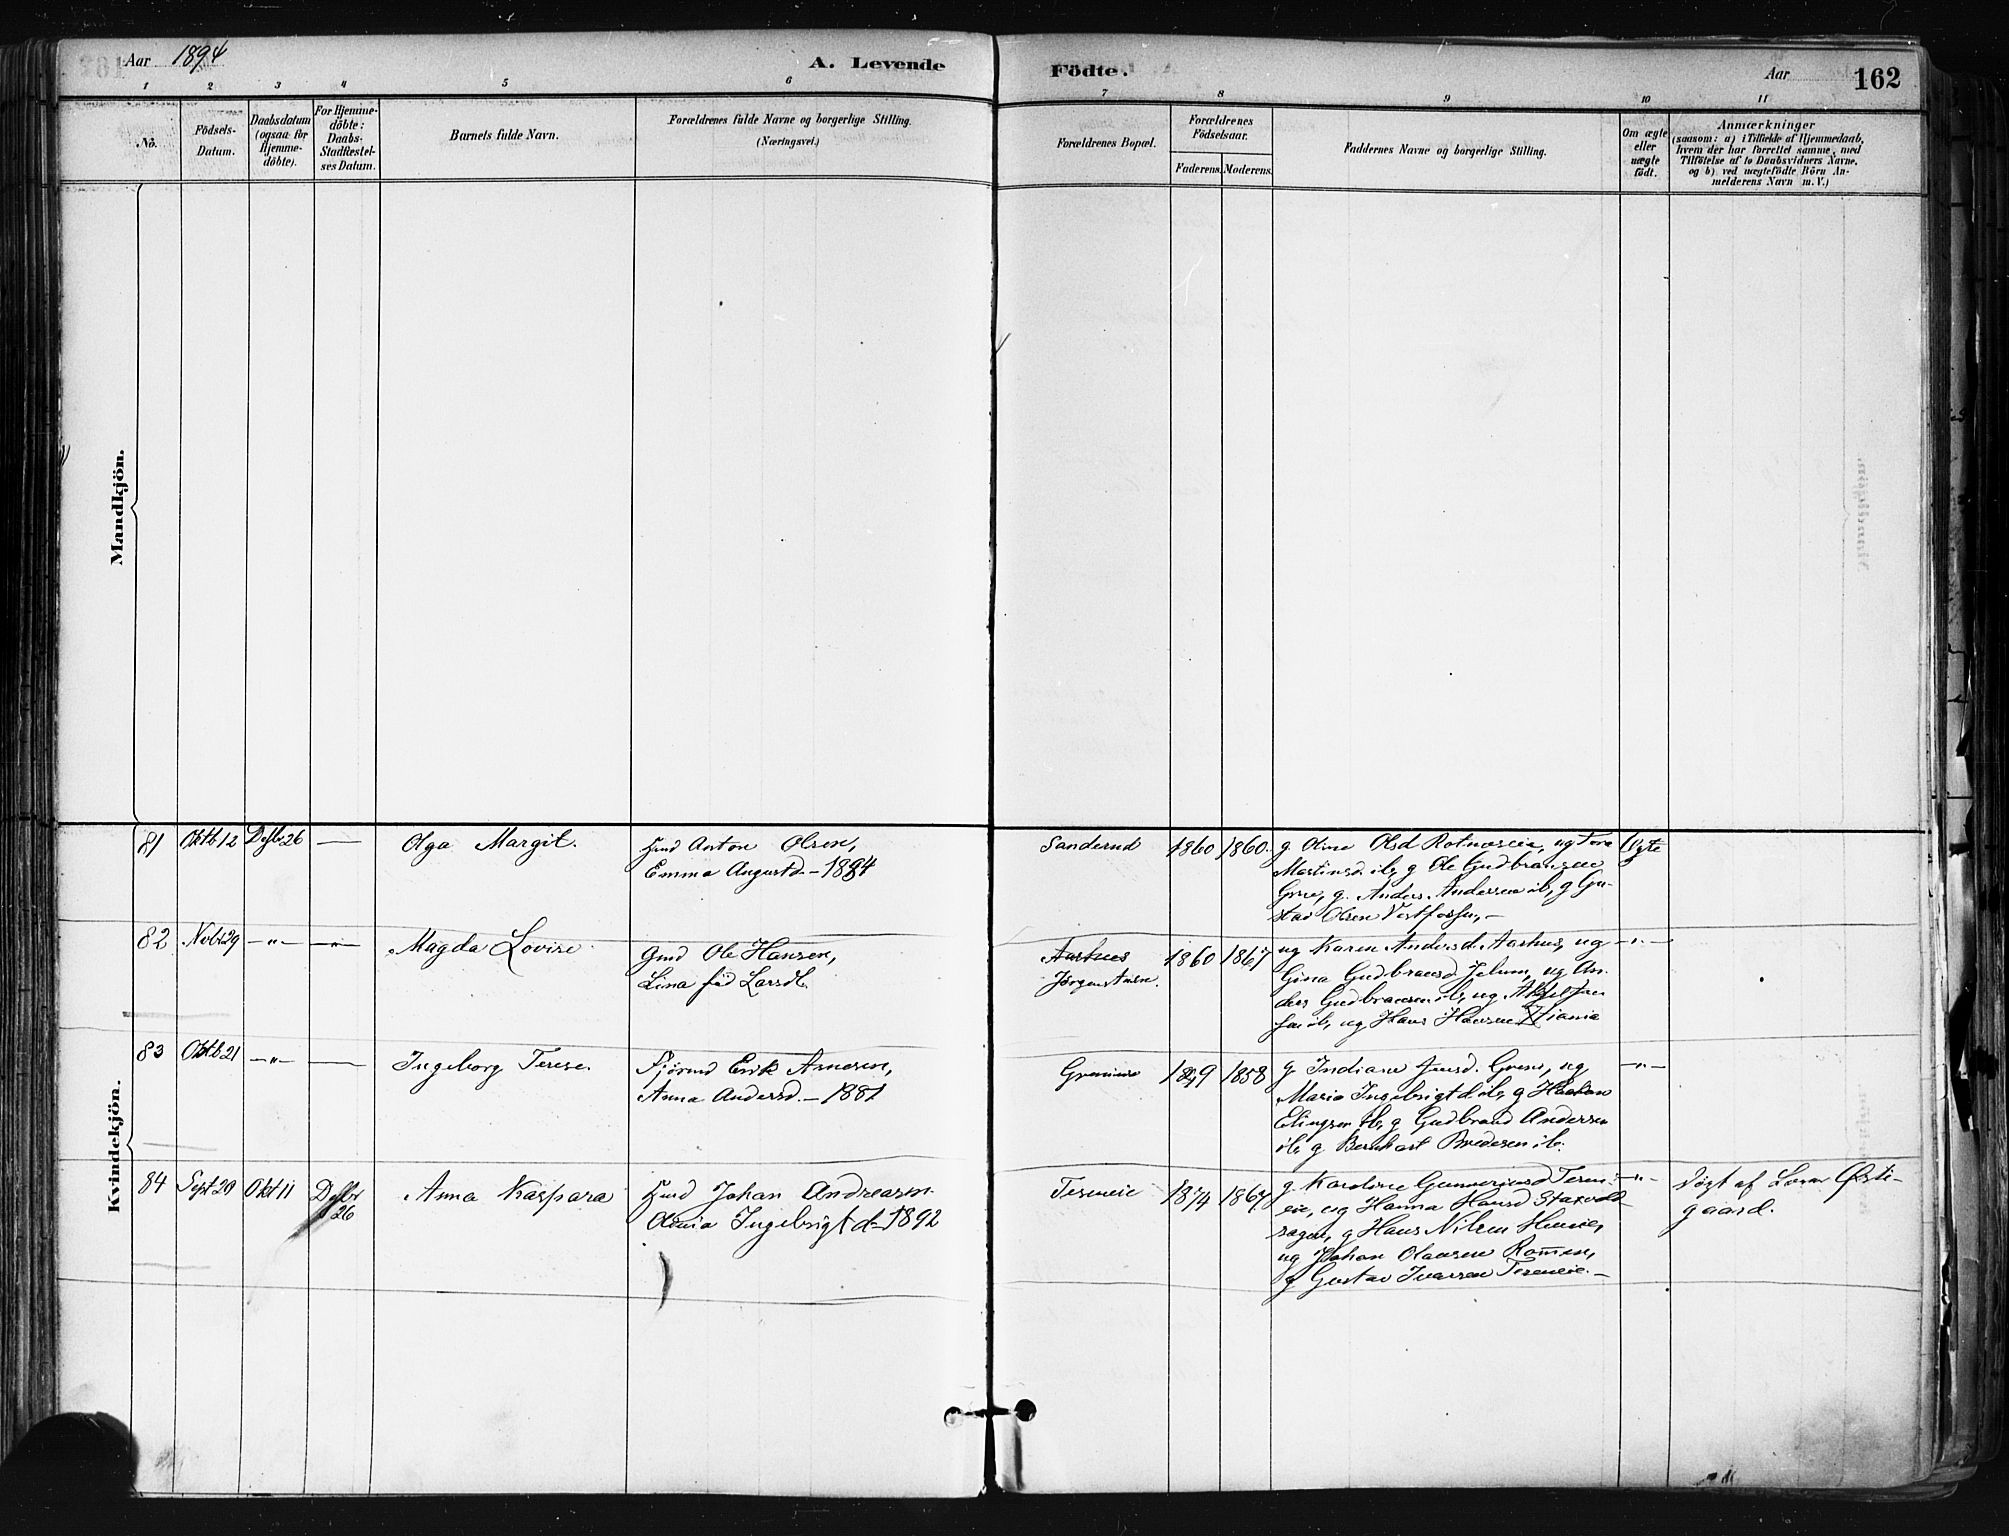 Aar 1894
A. Levende
Födte.
Aar
162
1 2 3 4 5 6 7 8 9 10 11
No.
Födsels-
Datum.
Daabsdatum
(ogsaa for
Hjemme-
döbte).
For Hjemme-
döbte:
Daabs-
Stadfæstel-
ses Datum.
Barnets fulde Navn.
Forældrenes fulde Navne og borgerlige Stilling.
(Næringsvei.)
Forældrenes Bopæl.
Forældrenes
Födselsaar.
Faderens. Moderens.
Faddernes Navne og borgerlige Stilling.
Om ægte
eller
uægte
födt.
Anmærkninger
(saasom: a) i Tilfælde af Hjemmedaab,
hvem der har forrettet samme, med
Tilföielse af to Daabsvidners Navne,
og b) ved uægtefödte Börn An-
melderens Navn m. V.)
Mandkjön.
Kvindekjön.
81 Oktb 12 Dsbr 26 — Olga Margit.
Hmd Anton Olsen,
Emma Augustd. — 1884
Sanderud 1860 1860.
g. Oline Olsd
Martinsd ib, g Ole Gudbransen
Grue, g. Anders Andersen ib, g Gu-
stav Olsen
Ægte
82 Nvb 29 —"— —"— Magda Lovise.
Gmd Ole Hansen,
Lina fød Larsd.
Aarhus
1860 1867
ug Karen Andersd. Aarhus, ug
Gina Gudbransd Jelum, ug An-
ders Gudbransen ib, ug
ib, ug Hans Hansen Xiania
—"—
83 Oktb 21 —"— — Ingeborg Terese.
Erik Arnesen,
Anna Andersd. — 1881
1849 1858
g Indiane Grue, ug
Maria Ingebrigtd ib, g Haakon
Elingsen ib, g Gudbrand Andersen
ib, g Bernhart Bredesen ib.
—"—
84 Sept 20 Okt 11 Dsbr
26
Anna Kaspara
Hmd Johan Andreasen
Ingebrigtd — 1892
Teseneie 1874 1867
g. Karoline
eie, ug Hanna Hansd
g Hans Nilsen
ug Johan Olausen
g Gustav Ivarsen Teseneie. —
—"—
Døbt af Østi-
gaard.